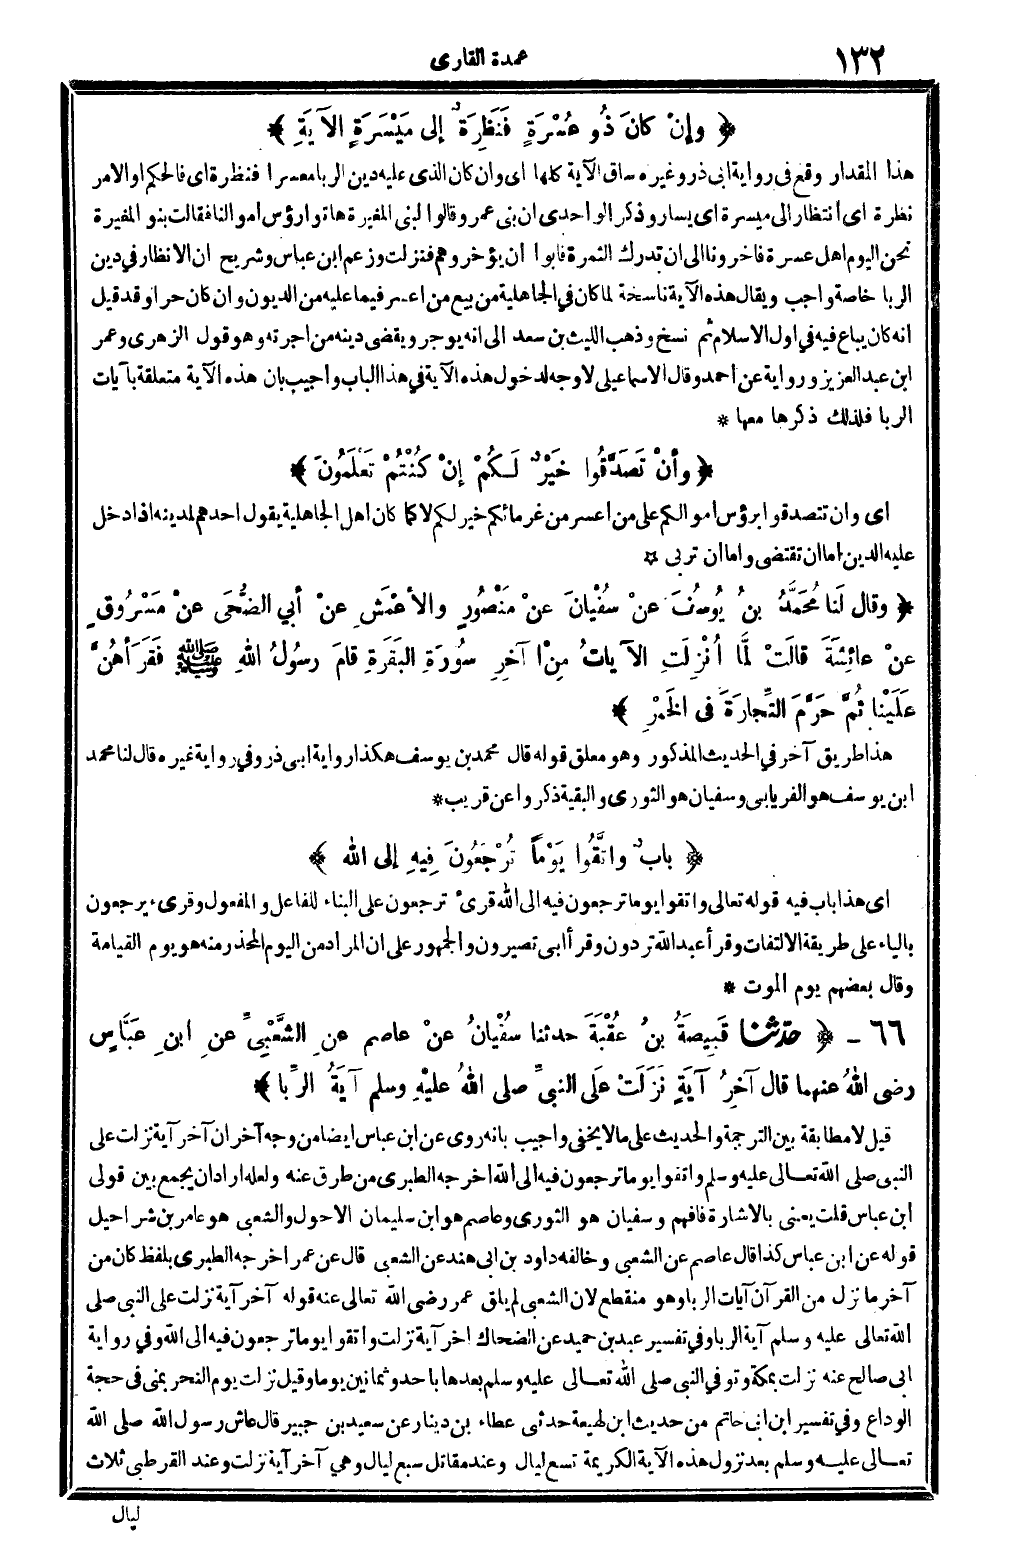 ١٣٢
عمدة القارى
﴿ وإنْ كانَ ذُو عُسْرَةٍ فَنَظِرَةٌ إلى مَيْسَرَةٍ الآيَةِ ﴾
هذا المقدار وقع فى رواية ابى ذر وغيره ساق الآية كلها اى وان كان الذى عليه دين الربا معسرا فنظرة اى فالحكم او الامر
نظرة اى انتظار الى ميسرة اى يسار وذكر الواحدى ان بنى عمر وقالوا لبنى المغيرة هاتوا رؤس اموالنا فقالت بنو المغيرة
نحن اليوم اهل عسرة فاخرونا الى ان تدرك الثمرة فابوا أن يؤخروهم فنزلت وزعم ابن عباس وشريح ان الانظار في دين
الربا خاصة واجب ويقال هذه الآية ناسخة لما كان في الجاهلية من بيع من اعسر فيما عليه من الديون وان كان حرا وقد قيل
انه كان يباع فيه في اول الاسلام ثم نسخ وذهب الليث بن سعد الى انه يوجر ويقضى دينه من اجرته وهو قول الزهرى وعمر
ابن عبد العزيز ورواية عن أحمد وقال الاسماعيلى لا وجه لدخول هذه الآية في هذا الباب واجيب بان هذه الآية متعلقة بآيات
الربا فلذلك ذكرها معها *
﴿ وأنْ تَصَدَّقُوا خَيْرٌ لَـكُمْ إنْ كُنْتُمْ تَعْلَمُونَ ﴾
اى وان تتصدقوا برؤس أموالكم على من أعسر من غرمائكم خير لكم لا كما كان اهل الجاهلية يقول احدهم لمدينه اذا دخل
عليه الدين اما ان تقتضى واما ان تربى ☆
﴿ وقال لَنا مُحَمَّدُ بنُ يُوسُفَ عنْ سُفْيانَ عنْ مَنْصُورٍ والأعْمَشِ عنْ أبي الضُّحَى عنْ مَسْرُوقٍ
عنْ عائِشَةَ قالَتْ لَمَّا أُنْزِلَتِ الآياتُ مِنْ آخِرِ سُورَةِ البَقَرَةِ قامَ رسُولُ اللهِ ﷺ فَقَرَأهُنَّ
عَلَيْنا ثُمَّ حَرَّمَ التِّجارَةَ فى الخَمْرِ ﴾
هذا طريق آخر في الحديث المذكور وهو معلق قوله قال محمد بن يوسف هكذا رواية ابى ذر وفي رواية غيره قال لنا محمد
ابن يوسف هو الفريابى وسفيان هو الثورى والبقية ذكروا عن قريب *
﴿ بابٌ واتَّقُوا يَوْمًا تُرْجَعُونَ فِيهِ إلى الله ﴾
اى هذا باب فيه قوله تعالى واتقوا يوما ترجعون فيه الى الله قرئ ترجعون على البناء للفاعل والمفعول وقرىء يرجعون
بالياء على طريقة الالتفات وقرأ عبد الله تردون وقرأ أبى تصيرون والجمهور على ان المراد من اليوم المحذر منه هو يوم القيامة
وقال بعضهم يوم الموت *
٦٦ ـ ﴿ حدّثنا قَبِيصَةُ بنُ عُقْبَةَ حدثنا سُفْيانُ عنْ عاصم عنِ الشَّعْبِيِّ عنِ ابنِ عَبَّاسٍ
رضى اللهُ عنهما قال آخِرُ آيَةٍ نَزَلَتْ عَلَى النبيِّ صلى اللهُ عليْهِ وسلم آيَةُ الرِّبا ﴾
قيل لا مطابقة بين الترجمة والحديث على ما لا يخفى واجيب بانه روى عن ابن عباس ايضا من وجه آخر ان آخر آية نزلت على
النبى صلى الله تعـالى عليه وسلم واتقوا يوما ترجعون فيه الى الله اخرجه الطبرى من طرق عنه ولعله اراد ان يجمع بين قولى
ابن عباس قلت يعنى بالاشارة فافهم وسفيان هو الثورى وعاصم هو ابن سليمان الاحول والشعبى هو عامر بن شراحيل
قوله عن ابن عباس كذا قال عاصم عن الشعبى وخالفه داود بن ابى هند عن الشعبى قال عن عمر اخرجه الطبرى بلفظ كان من
آخر ما نزل من القرآن آيات الربا وهو منقطع لان الشعبى لم يلق عمر رضى الله تعالى عنه قوله آخر آية نزلت على النبى صلى
الله تعالى عليه وسلم آية الربا وفي تفسير عبد بن حميد عن الضحاك اخر آية نزلت واتقوا يوما ترجعون فيه الى الله وفي رواية
ابى صالح عنه نزلت بمكة وتوفي النبى صلى الله تعـالى عليه وسلم بعدها باحد وثمانين يوما وقيل نزلت يوم النحر بمنى فى حجة
الوداع وفي تفسير ابن ابى حاتم من حديث ابن لهيعة حدثى عطاء بن دينار عن سعيد بن جبير قال عاش رسول الله صلى الله
تعـالى عليـه وسلم بعد نزول هذه الآية الكريمة تسع ليال وعند مقاتل سبع ليال وهي آخر آية نزلت وعند القرطبى ثلاث
ليال